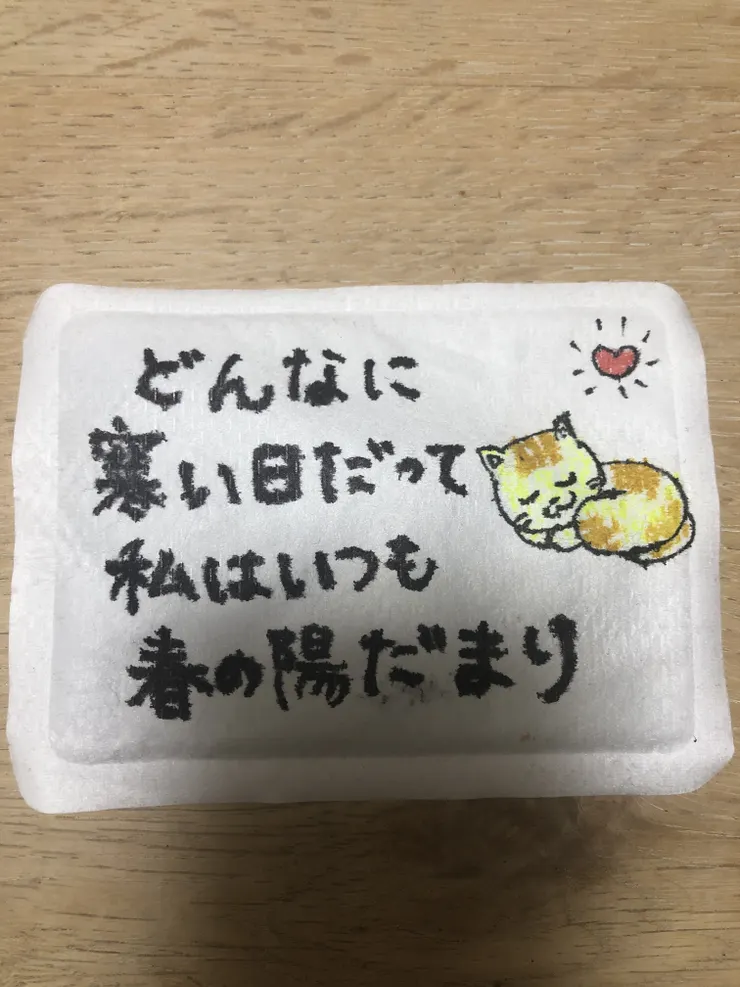 どんなに
寒い日だって
私はいつも
春の陽だまり